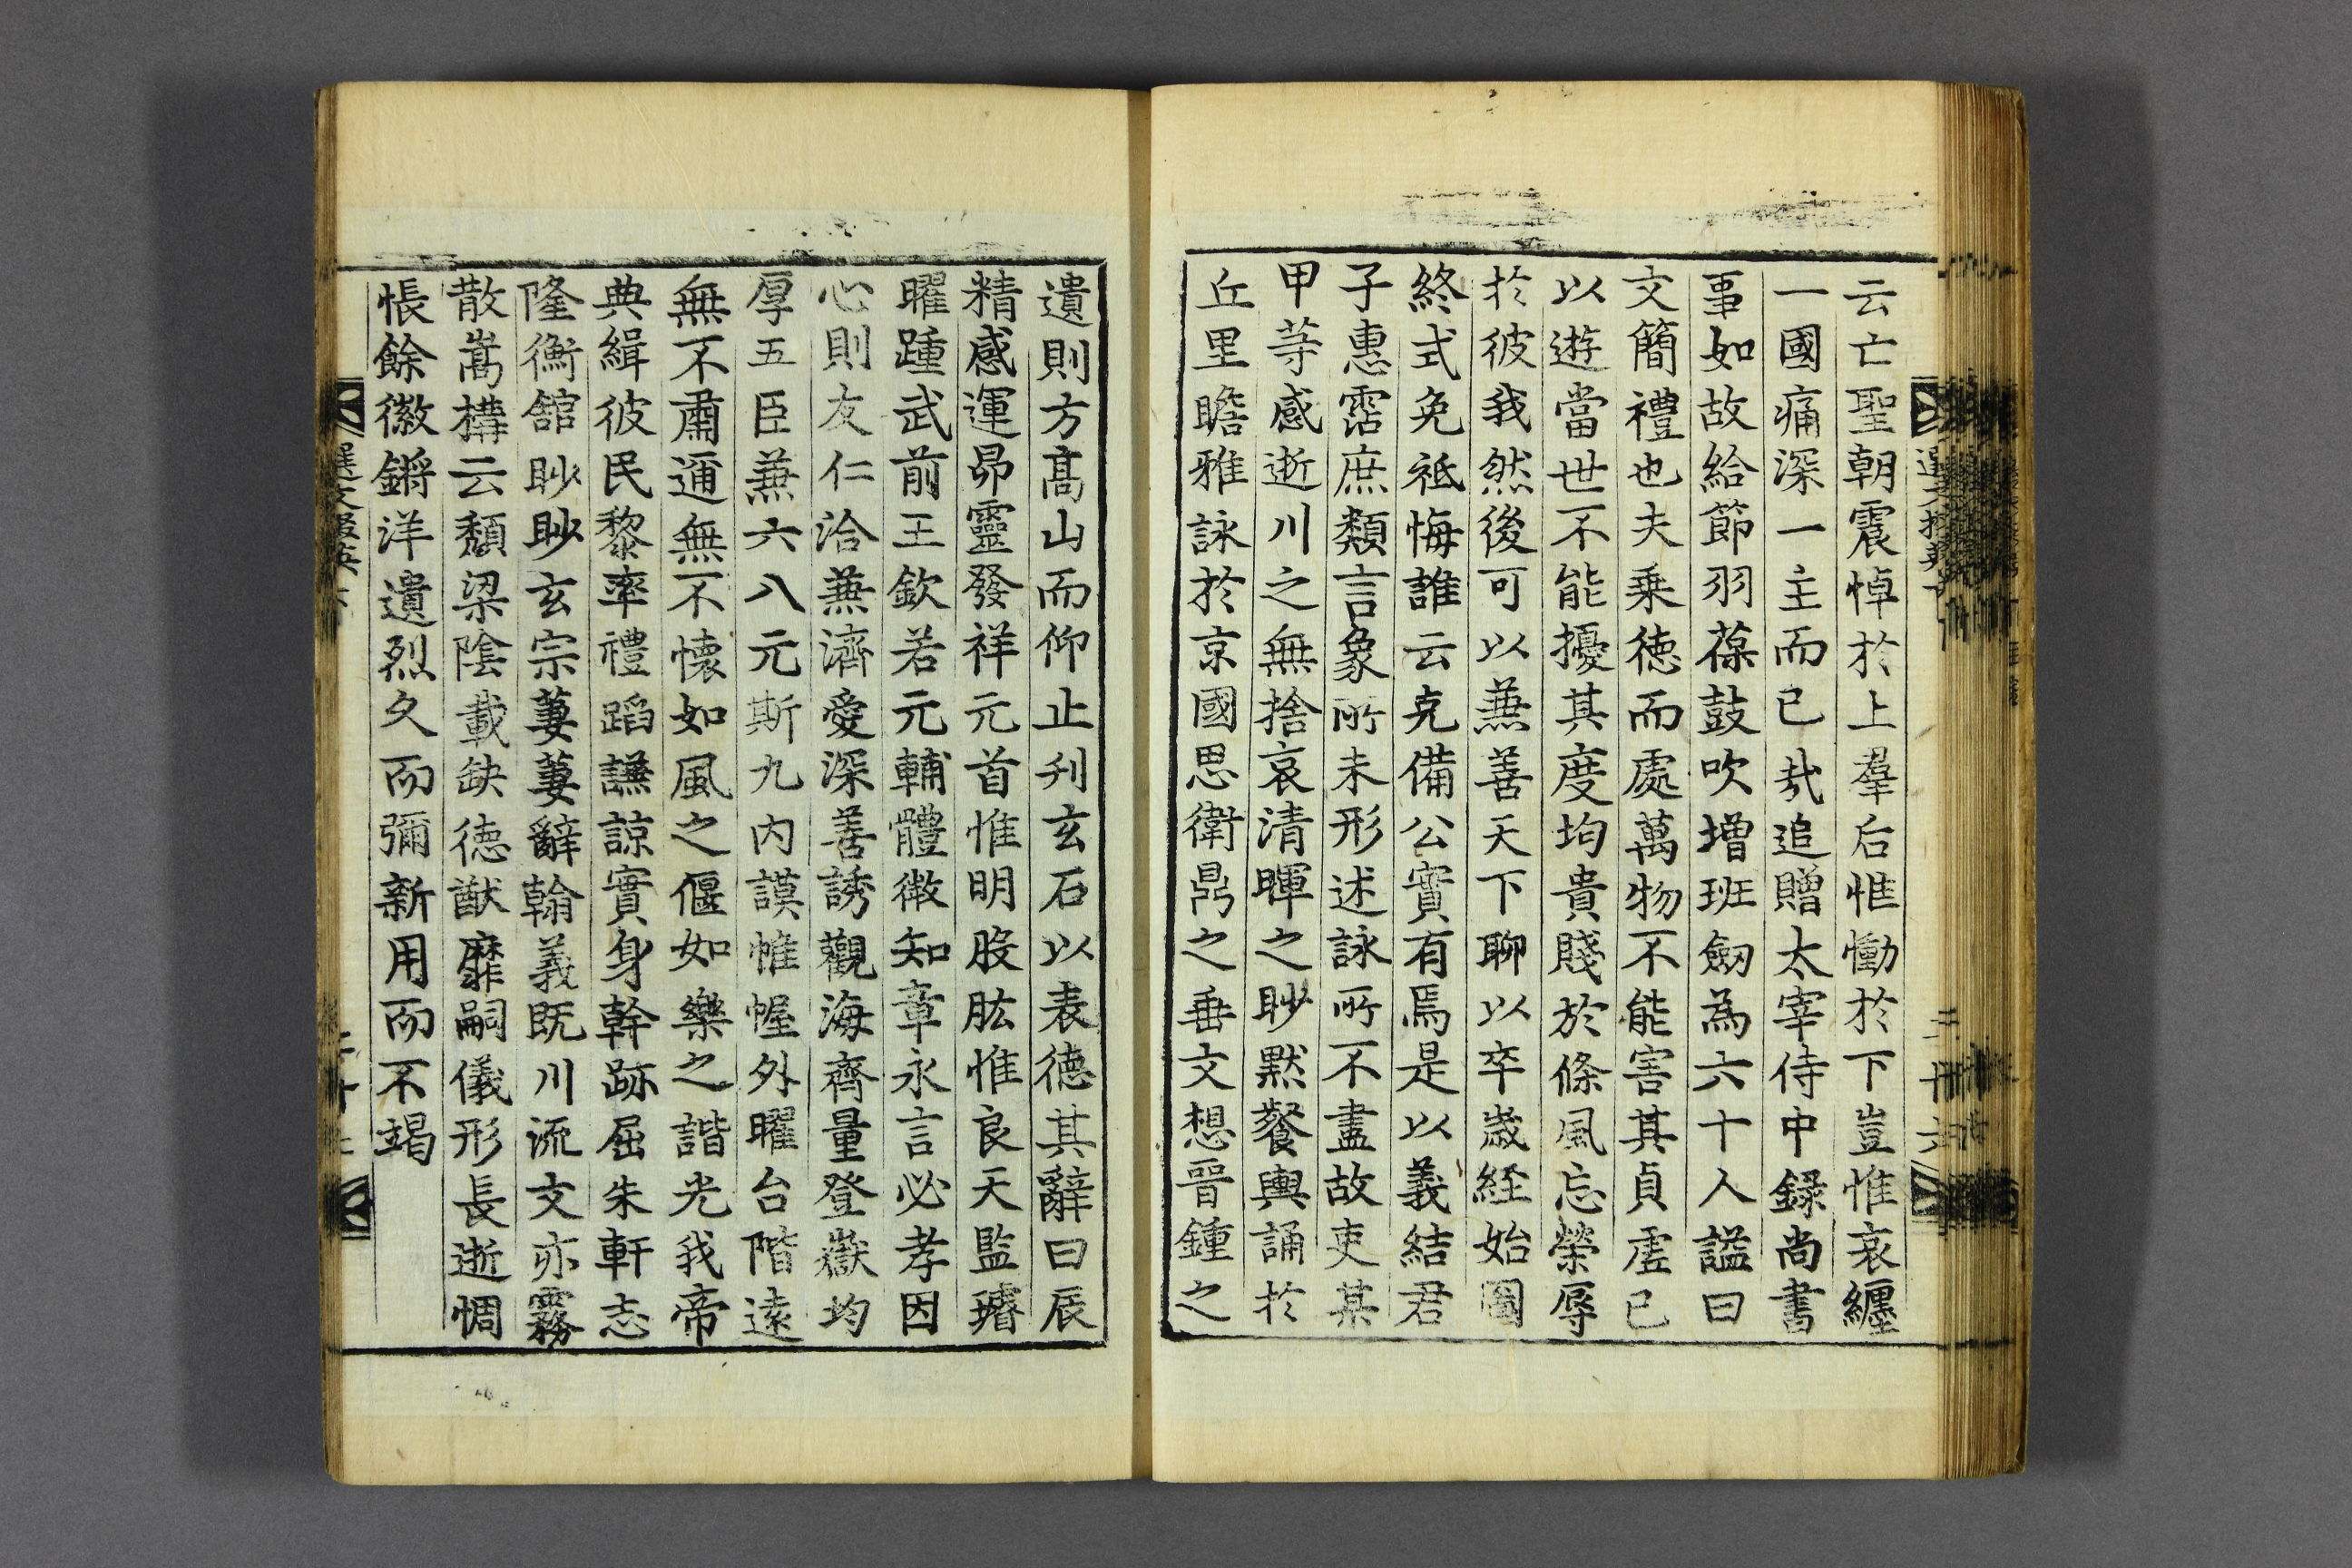 云亡聖朝震悼於上羣后惟慟於下豈惟哀纏
一國痛深一主而已哉追贈太宰侍中錄尚書
事如故給節羽葆鼓吹增班劒為六十人謚曰
文簡禮也夫乗徳而處萬物不能害其貞虗己
以遊當世不能擾其度均貴賤於條風忘榮辱
於彼我然後可以兼善天下聊以卒歲經始圖
終式免祗悔誰云克備公實有焉是以義結君
子惠霑庶類言象所未形述詠所不盡故吏某
甲等感逝川之無捨哀清暉之眇默餐輿誦於
丘里瞻雅詠於京國思衛鼎之垂文想晉鍾之
遺則方髙山而仰止刋玄石以表徳其辭曰辰
精感運昴靈發祥元首惟明股肱惟良天監璿
曜踵武前王欽若元輔體微知章永言必孝因
心則友仁洽兼濟愛深善誘觀海齊量登嶽均
厚五臣兼六八元斯九内謨帷幄外曜台階逺
無不肅邇無不懷如風之偃如樂之諧光我帝
典緝彼民黎率禮蹈謙諒實身幹跡屈朱軒志
隆衡舘眇眇玄宗萋萋辭翰義既川流文亦霧
散嵩構云頹梁陰載缺德猷靡嗣儀形長逝惆
悵餘徽鏘洋遺烈久而彌新用而不竭